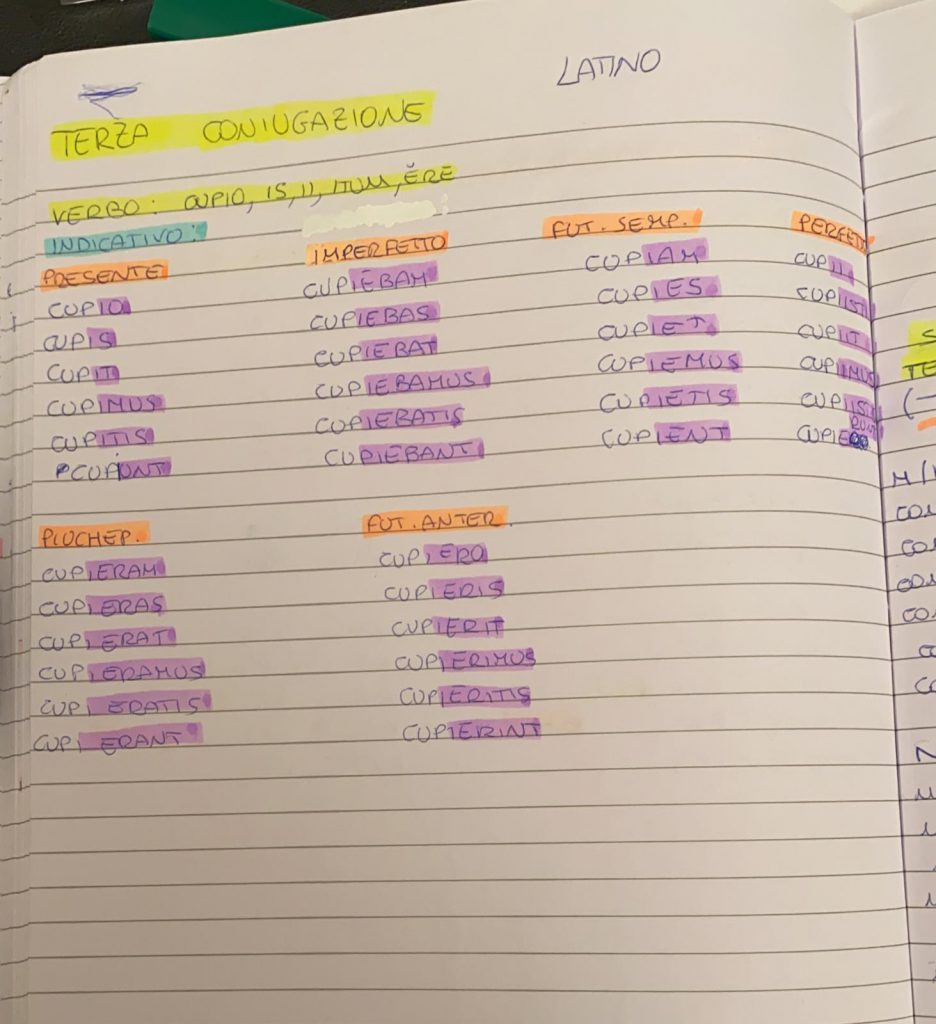 LATINO
TERZA CONIUGAZIONE
VERBO: CUPIO, IS, II, ITUM, ĔRE
INDICATIVO:
PRESENTE IMPERFETTO FUT. SEMP. PERFETTO
CUPIO CUPIEBAM CUPIAM CUPII
CUPIS CUPIEBAS CUPIES CUPIISTI
CUPIT CUPIEBAT CUPIET CUPIIT
CUPIMUS CUPIEBAMUS CUPIEMUS CUPIIMUS
CUPITIS CUPIEBATIS CUPIETIS
CUPIUNT CUPIEBANT CUPIENT
PIUCHEP. FUT. ANTER.
CUPIERAM CUPIERO
CUPIERAS CUPIERIS
CUPIERAT CUPIERIT
CUPIERAMUS CUPIERIMUS
CUPIERATIS CUPIERITIS
CUPIERANT CUPIERINT